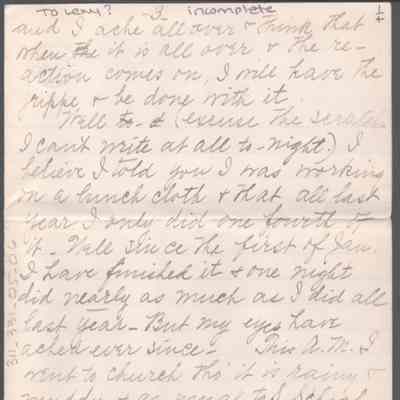 To Leay? -3- incomplete
and I ache all over & think that
when the it is all over & the re-
action comes on, I will have the
grippe & be done with it.
Well to- (excuse the scratches
I cant write at all to-night.) I
believe I told you I was working
on a lunch cloth & that all last
year I only did one fourth of
it - Well since the first of Jan.
I have finished it & one night
did nearly as much as I did all
last year - But my eyes have
ached ever since - This A.M. I
went to church tho' it is rainy &
muddy & as usual to S. School
311-331-05-06